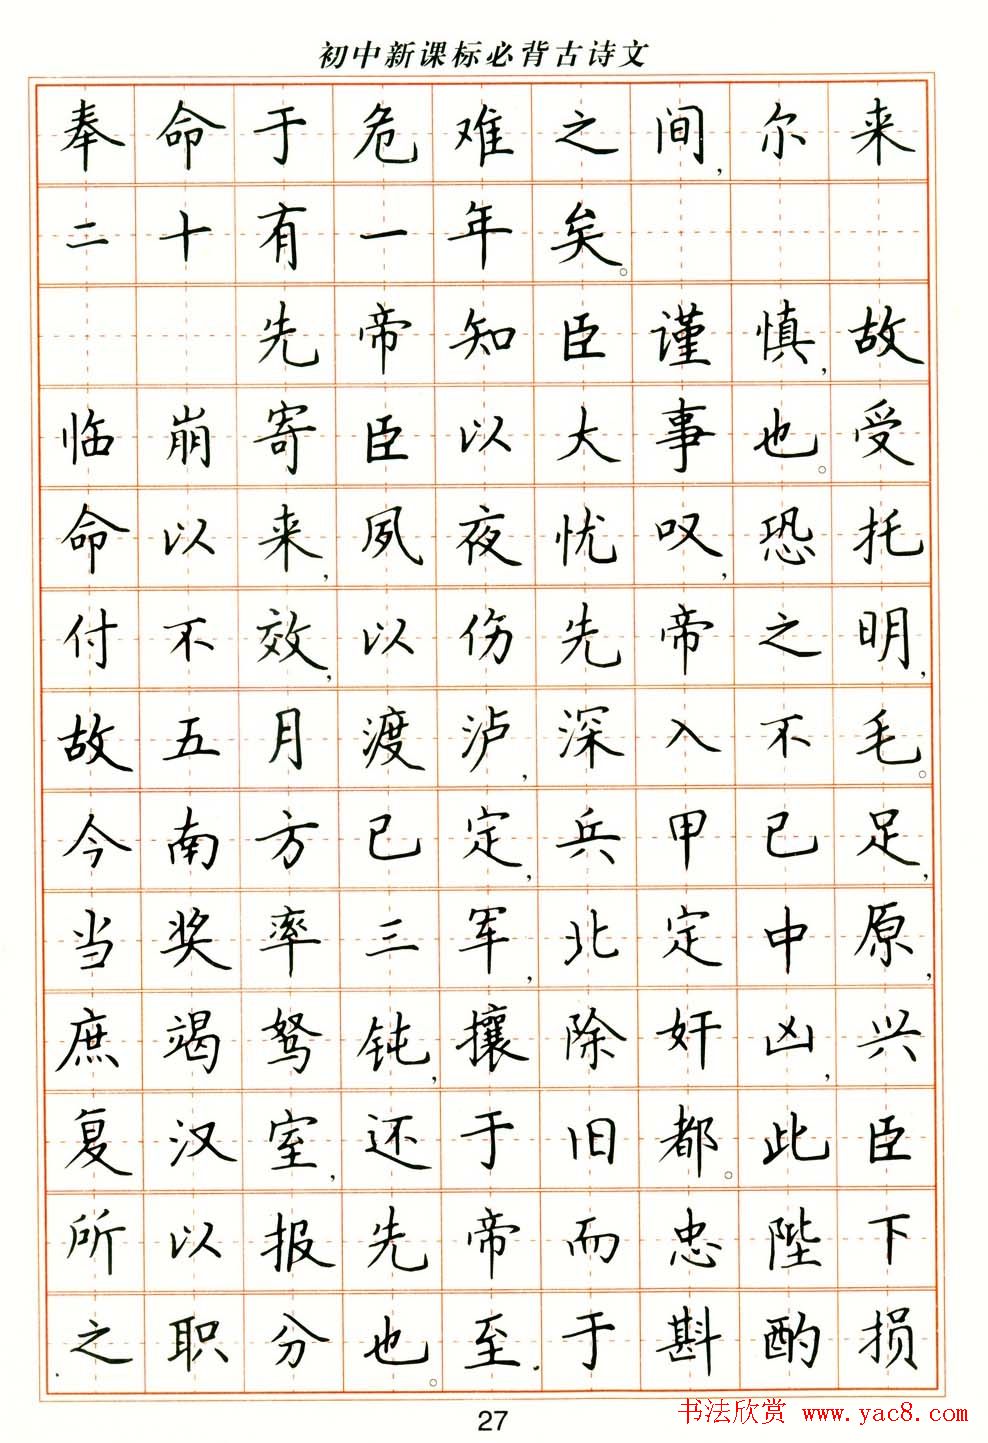 初中新课标必背古诗文
奉命于危难之间,尔来
二十有一年矣。
先帝知臣谨慎,故
临崩寄臣以大事也。受
命以来,夙夜忧叹,恐托
付不效,以伤先帝之明,
故五月渡泸,深入不毛。
今南方已定,兵甲已足,
当奖率三军,北定中原,
庶竭驽钝,攘除奸凶,兴
复汉室,还于旧都。此臣
所以报先帝而忠陛下
之职分也。至于斟酌损
27
书法欣赏 www.yac8.com